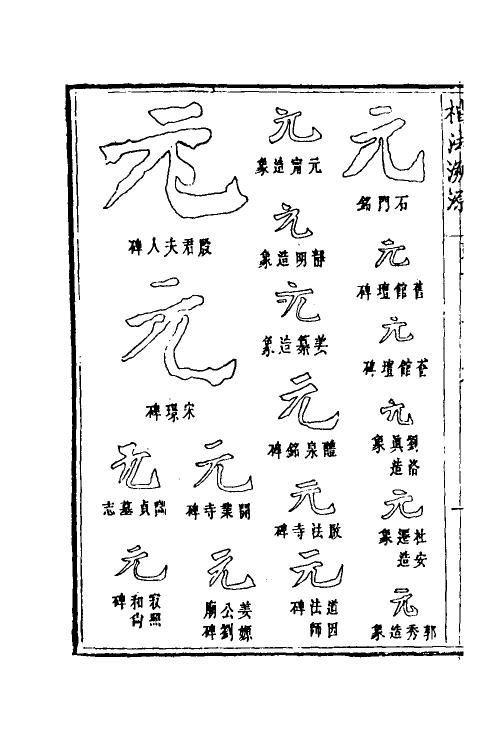 楷法溯源
元
石門銘
元
舊館壇碑
元
舊館壇碑
元
劉洛真造象
元
杜安遷造象
元
郭秀造象
元
元甯造象
元
靜明造象
元
姜纂造象
元
醴泉銘碑
元
啟法寺碑
元
道因法師碑
元
段君夫人碑
元
宋璟碑
元
開業寺碑
元
姜嫄公劉廟碑
元
貞墓志
元
寂照和尚碑